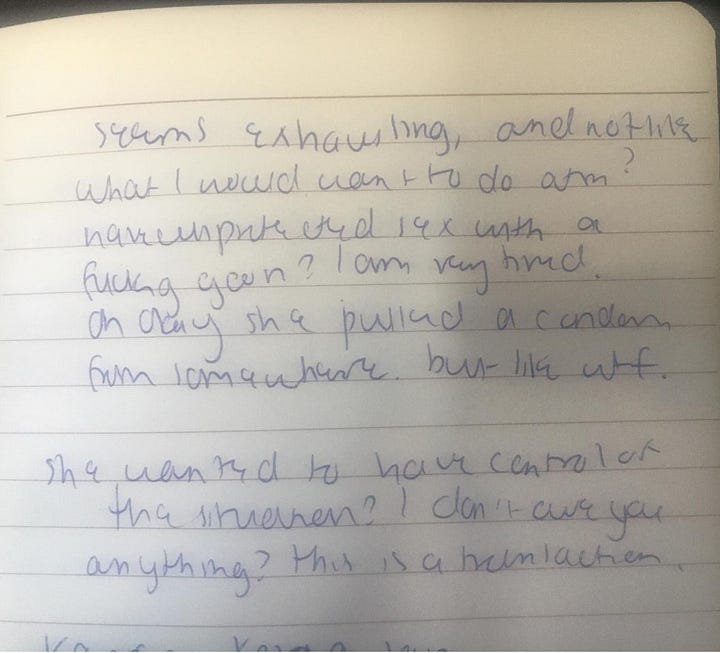 seems exhausting, and not like
what I would want to do atm?
have unprotected sex with a
fucking goon? I am very tired.
oh okay she pulled a condom
from somewhere. but like wtf.
she wanted to have control of
the situation? I don't owe you
anything? this is a transaction.